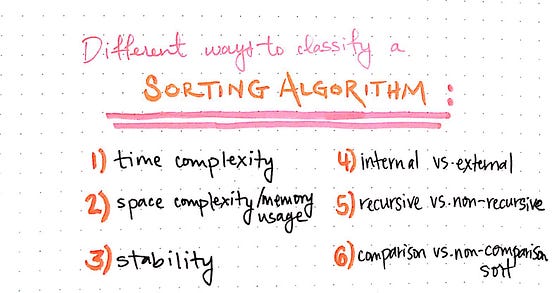 Different ways to classify a
SORTING ALGORITHM :
1) time complexity
2) space complexity/memory
usage
3) stability
4) internal vs. external
5) recursive vs. non-recursive
6) comparison vs. non-comparison
sort